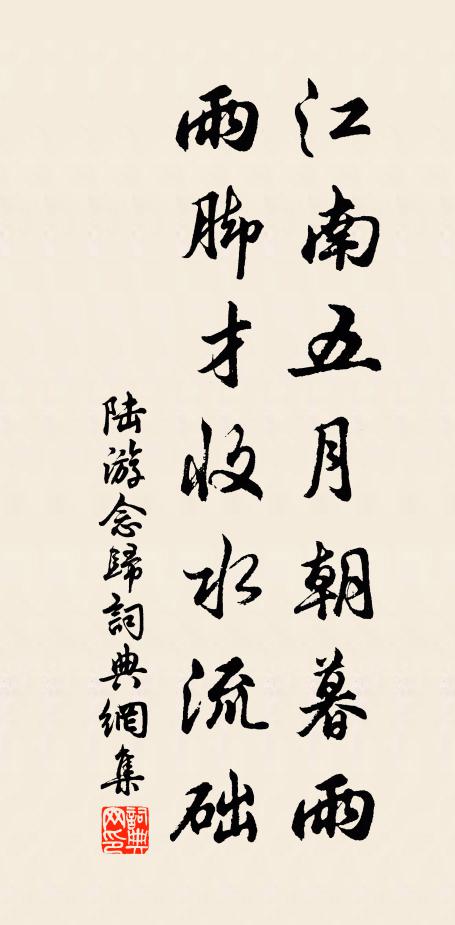 江南五月朝暮雨
雨脚才收水流础
陆游念歸詞典網集
詞典网印